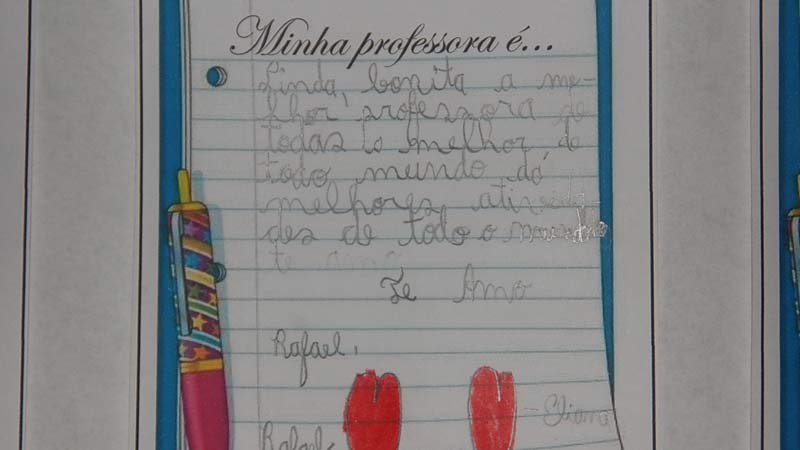 Minha professora é...
Linda, bonita a me-
lhor professora de
todas lo melhor do
todo mundo dá
melhores ativida-
des de todo o
te amo
Te Amo
Rafael.
Rafael- -Eliana